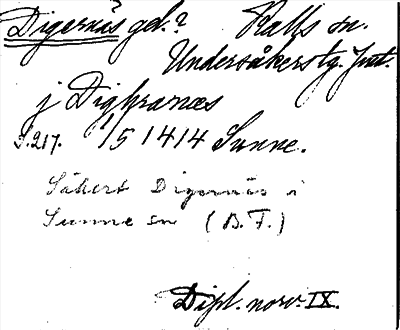 Digernäs gd.? Halls sn.
Undersåkers tg. Jmt.
j Dighranæs
S.217. 1/5 1414 Sunne.
Säkert Digernäs i
Sunne sn (B.F.)
Dipl. norv. IX.